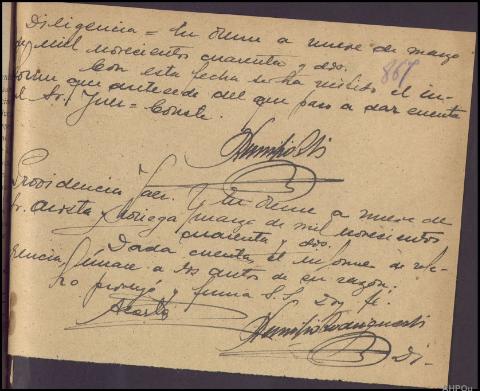 Diligencia = En Orense a nueve de marzo
de mil novecientos cuarenta y dos.
867
Con esta fecha se ha recibido el in-
forme que antecede del que paso a dar cuenta
al Sr. Juez = Consta.
Providencia Juez Y En Orense a nueve de
Sr. Acosta y Noriega marzo de mil novecientos
cuarenta y dos.
Dada cuenta, el informe de refe-
rencia únase a los autos de su razón;
lo proveyó y firma S.S. Doy fé.
Acosta
Di-
AHPOu